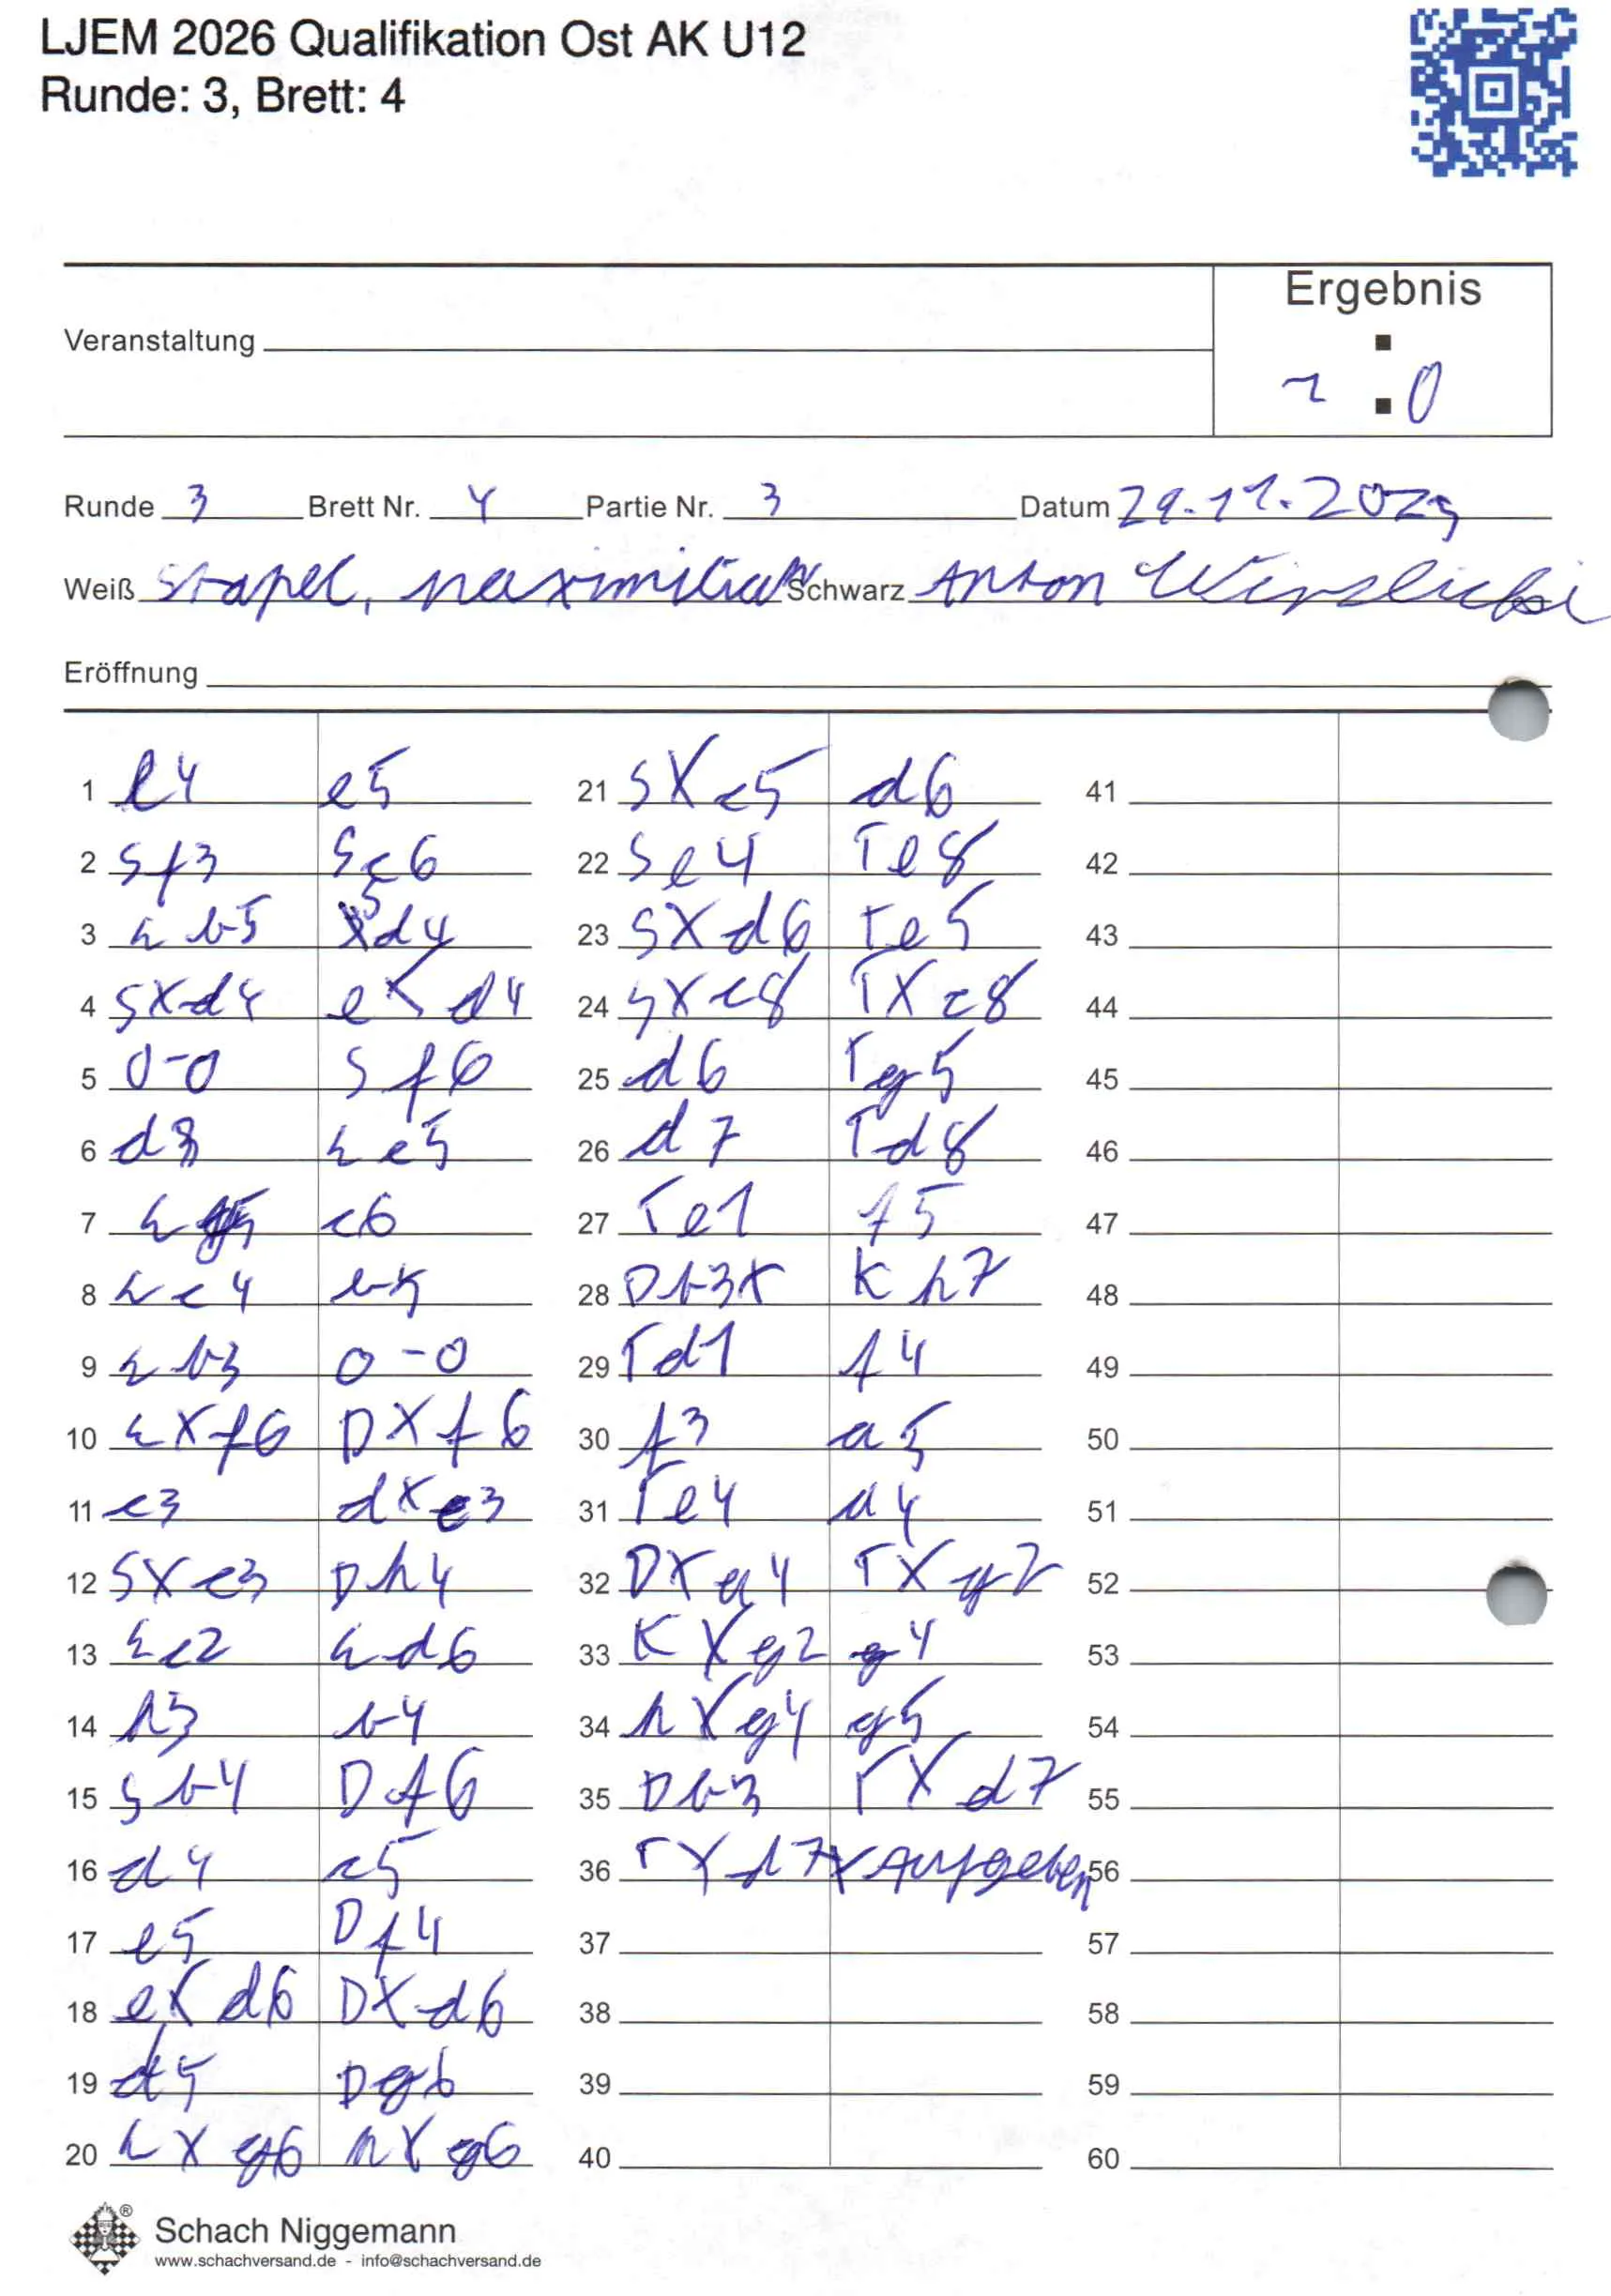 LJEM 2026 Qualifikation Ost AK U12
Runde: 3, Brett: 4
Ergebnis
Veranstaltung
1 : 0
Runde 3 Brett Nr. 4 Partie Nr. 3 Datum 29.11.2025
Weiß Stapel, Maximilian Schwarz Anton
Eröffnung
1 e4 e5
2 Sf3 Sc6
3 Lb5 Sd4
4 SXd4 eXd4
5 0-0 Sf6
6 d3 Lc5
7 Lg5 c6
8 Lc4 b5
9 Lb3 0-0
10 LXf6 DXf6
11 c3 dXc3
12 SXc3 Dh4
13 Lc2 Ld6
14 h3 b4
15 Sb4 Df6
16 d4 c5
17 e5 Df4
18 eXd6 DXd6
19 d5 Dg6
20 LXg6 hXg6
21 SXc5 d6
22 Se4 Te8
23 SXd6 Te5
24 SXc8 TXc8
25 d6 Tg5
26 d7 Td8
27 Te1 f5
28 Db3X Kh7
29 Td1 f4
30 f3 a5
31 Te4 a4
32 DXa4 TXg2
33 KXg2 g4
34 hXg4 g5
35 Db3 TXd7
36 TXd7X Aufgeben
37
38
39
40
41
42
43
44
45
46
47
48
49
50
51
52
53
54
55
56
57
58
59
60
Schach Niggemann
www.schachversand.de - info@schachversand.de